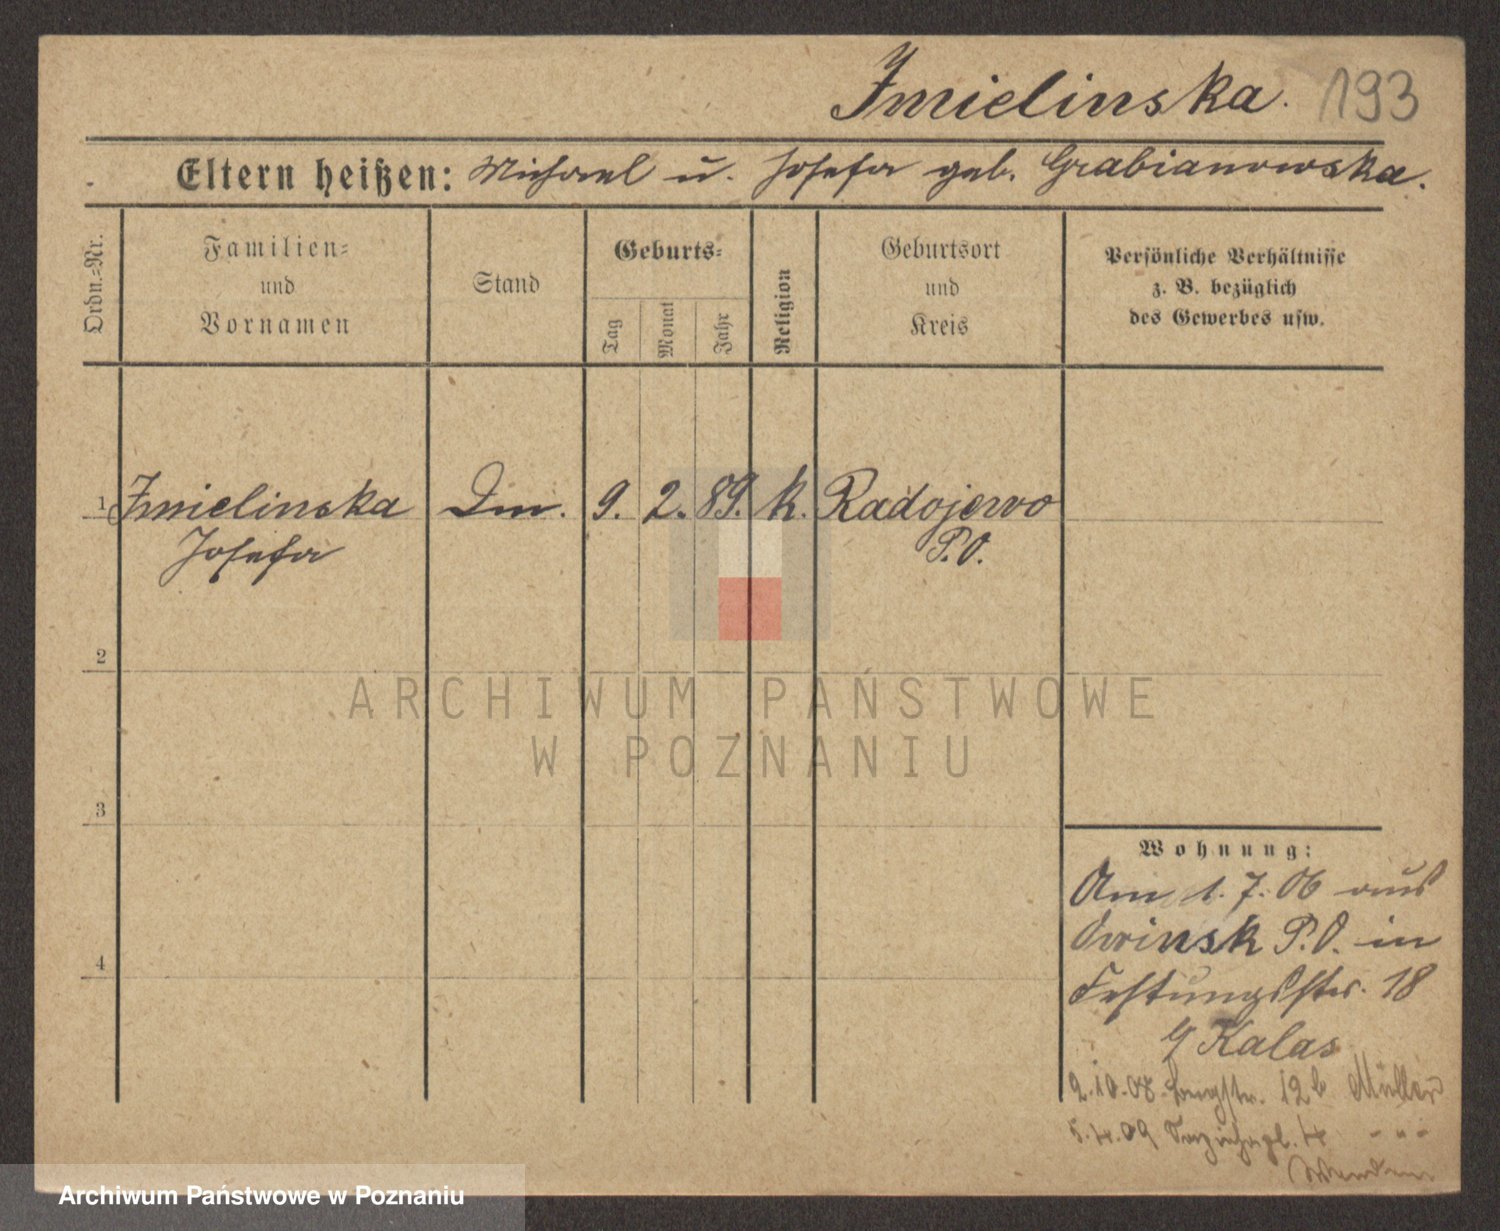 Imielinska. 193
Eltern heißen: Michael u. Josefa geb. Grabianowska.
Ordn.=Nr.
Familien=
und
Vornamen
Stand
Geburts=
Tag
Monat
Jahr
Religion
Geburtsort
und
Kreis
Persönliche Verhältnisse
z. B. bezüglich
des Gewerbes usw.
1 Imielinska Dm. 9. 2. 89. k. Radojewo
Josefa P.O.
2
ARCHIWUM PAŃSTWOWE
W POZNANIU
3
Wohnung:
Am 1. 7. 06 aus
Owinsk P.O. in
4
Festungsstr. 18
b/ Kalas
2.10.08. 12 b Müller
5.4.09 4 - " -
Wenden
Archiwum Państwowe w Poznaniu